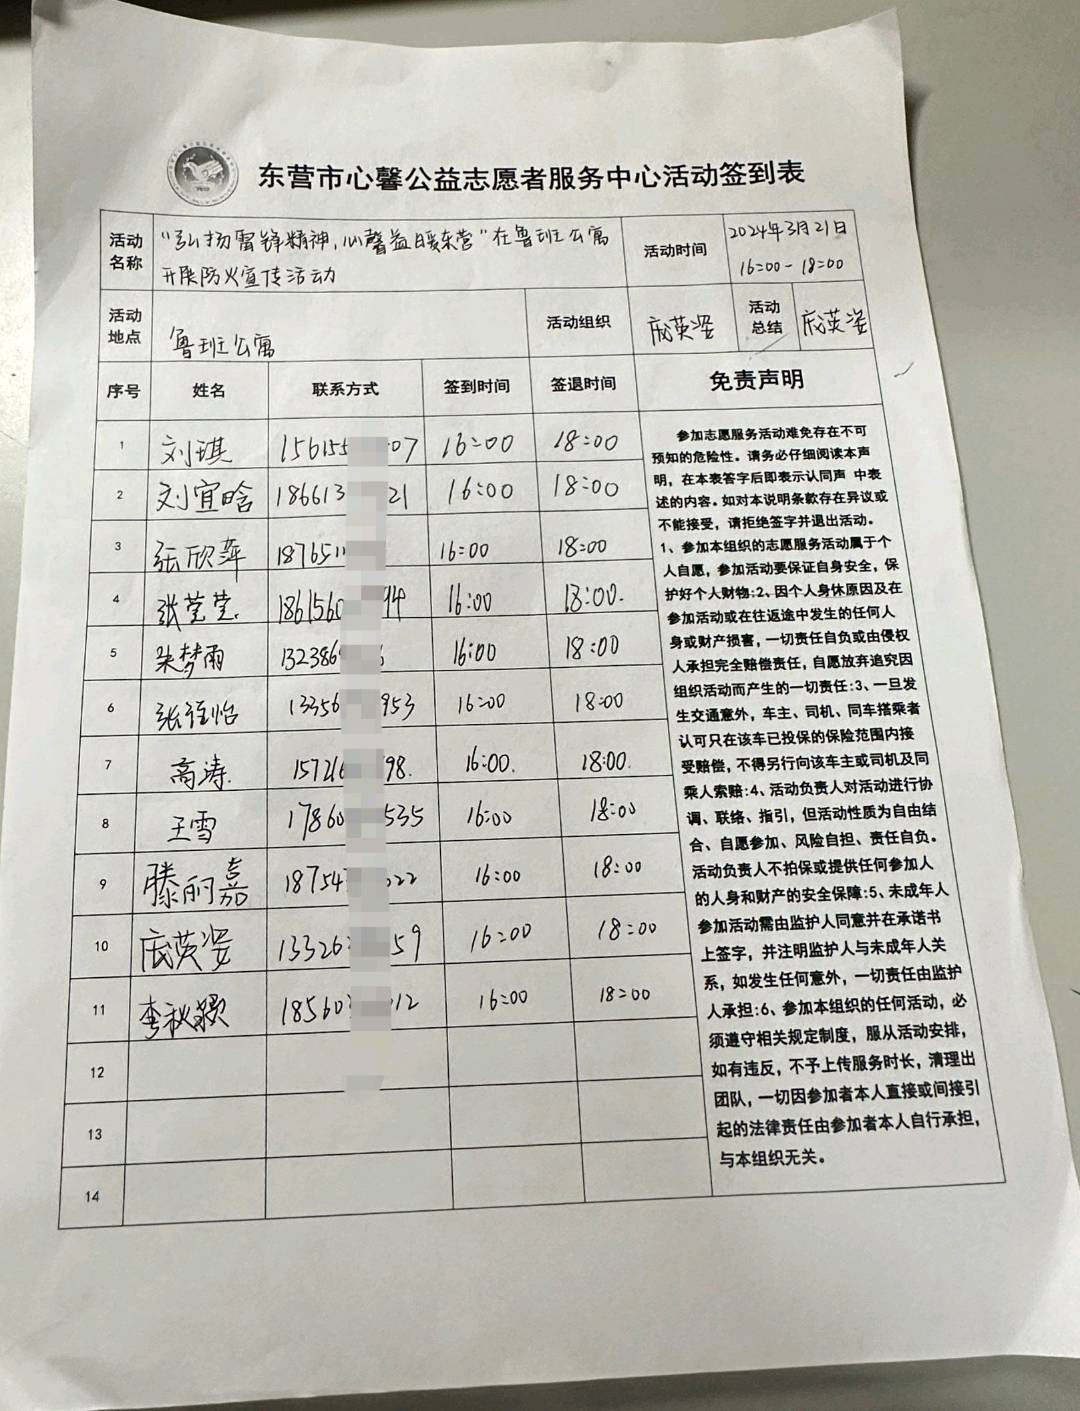 东营市心馨公益志愿者服务中心活动签到表
活动名称 "弘扬雷锋精神,心馨益暖东营"在鲁班公寓 活动时间 2024年3月21日
开展防火宣传活动 16:00-18:00
活动地点 鲁班公寓 活动组织 庞英姿 活动总结 庞英姿
序号 姓名 联系方式 签到时间 签退时间 免责声明
1 刘琪 156155 07 16:00 18:00
2 刘宜晗 186613 21 16:00 18:00
3 张欣萍 187651 16:00 18:00
4 张莹莹 1861560 94 16:00 18:00.
5 朱梦雨 132386 6 16:00 18:00
6 张 怡 13356 953 16:00 18:00
7 高涛. 15721 98. 16:00. 18:00.
8 王雪 17860 535 16:00 18:00
9 滕丽嘉 18754 022 16:00 18:00
10 庞英姿 13326 59 16:00 18:00
11 李秋颖 18560 012 16:00 18:00
12
13
14
参加志愿服务活动难免存在不可
预知的危险性。请务必仔细阅读本声
明,在本表答字后即表示认同声 中表
述的内容。如对本说明条款存在异议或
不能接受,请拒绝签字并退出活动。
1、参加本组织的志愿服务活动属于个
人自愿,参加活动要保证自身安全,保
护好个人财物:2、因个人身体原因及在
参加活动或在往返途中发生的任何人
身或财产损害,一切责任自负或由侵权
人承担完全赔偿责任,自愿放弃追究因
组织活动而产生的一切责任:3、一旦发
生交通意外,车主、司机、同车搭乘者
认可只在该车已投保的保险范围内接
受赔偿,不得另行向该车主或司机及同
乘人索赔:4、活动负责人对活动进行协
调、联络、指引,但活动性质为自由结
合、自愿参加、风险自担、责任自负。
活动负责人不拍保或提供任何参加人
的人身和财产的安全保障:5、未成年人
参加活动需由监护人同意并在承诺书
上签字,并注明监护人与未成年人关
系,如发生任何意外,一切责任由监护
人承担:6、参加本组织的任何活动,必
须遵守相关规定制度,服从活动安排,
如有违反,不予上传服务时长,清理出
团队,一切因参加者本人直接或间接引
起的法律责任由参加者本人自行承担,
与本组织无关。